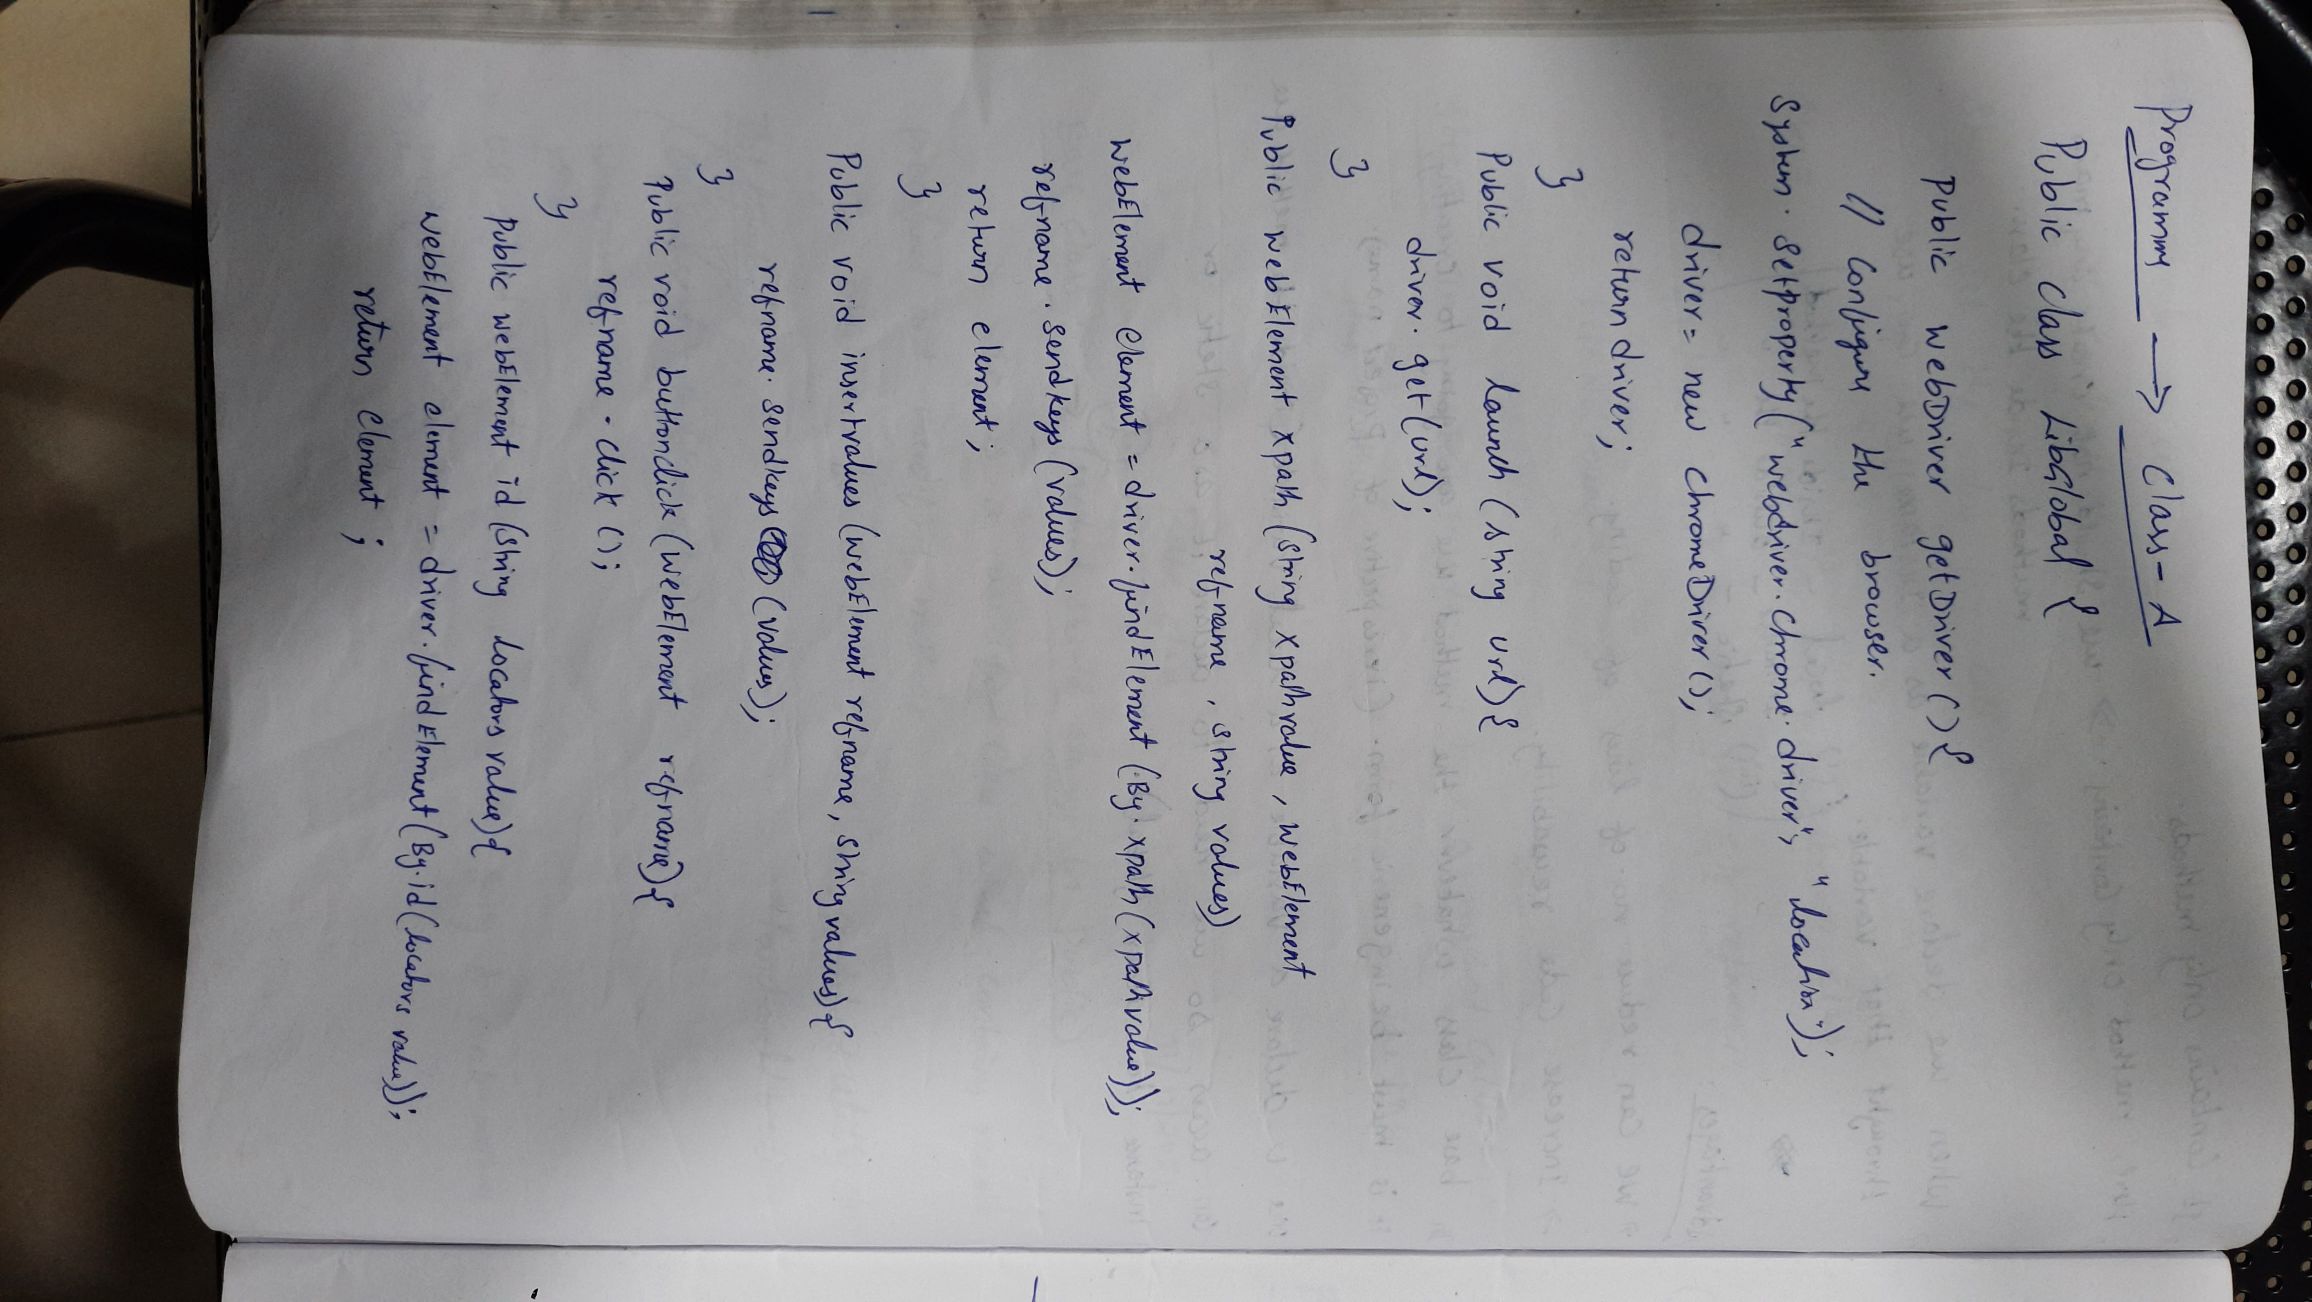 Programm → Class-A
Public class LibGlobal {
Public WebDriver getDriver () {
// Configure the browser.
System. Setproperty ("webdriver.chrome.driver", "location");
driver = new chromeDriver ();
return driver;
}
Public void launch (string url) {
driver. get (url);
}
Public webElement xpath (string xpathvalue, webElement
refname, string values)
WebElement element = driver.findElement (By. xpath (xpathvalue));
refname. sendkeys (values);
return element;
}
Public void insertvalues (WebElement refname, string values) {
refname. sendkeys (values);
}
Public void buttonclick (WebElement refname) {
refname. click ();
}
Public webElement id (string locatorsvalue) {
WebElement element = driver.findElement (By.id (locatorsvalue));
return element;